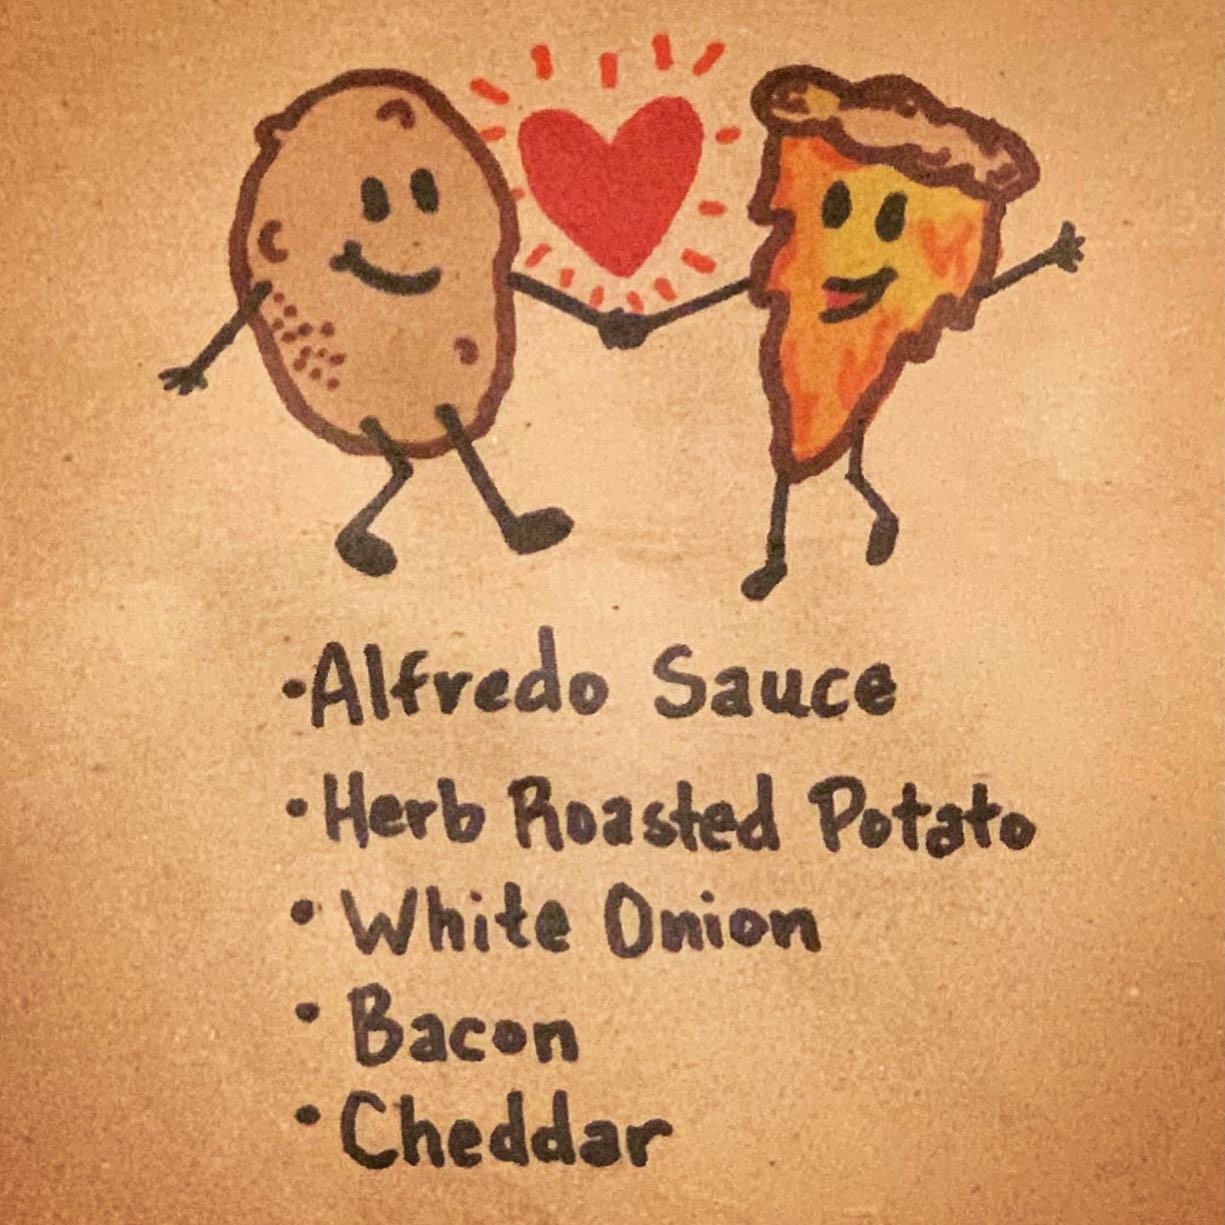 ·Alfredo Sauce
·Herb Roasted Potato
· White Onion
· Bacon
· Cheddar